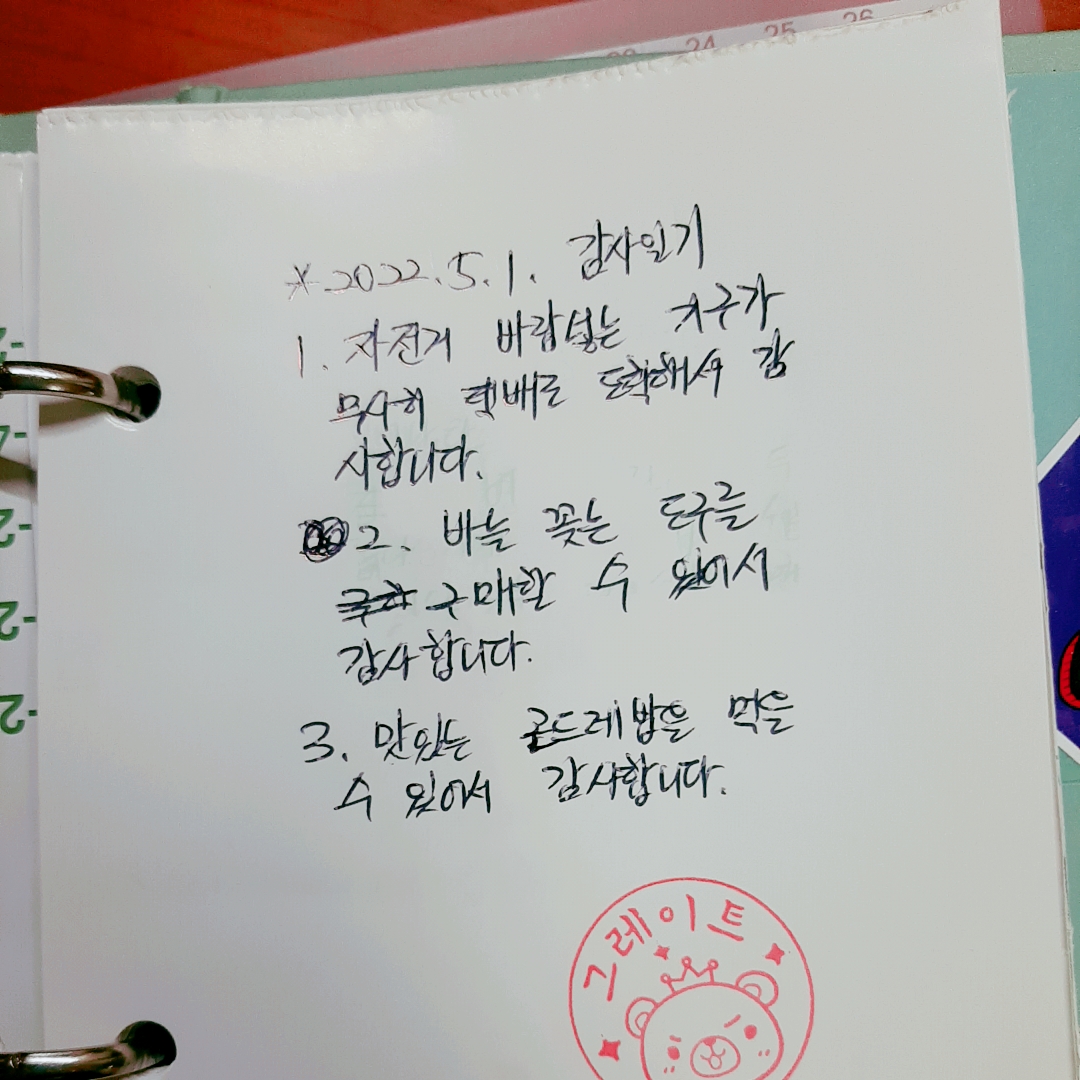 23 24 25 26
* 2022.5.1. 감사일기
1. 자전거 바람넣는 기구가
무사히 택배로 도착해서 감
사합니다.
2. 바늘 꽂는 도구를
구매할 수 있어서
감사합니다.
3. 맛있는 곤드레밥을 먹을
수 있어서 감사합니다.
그레이트